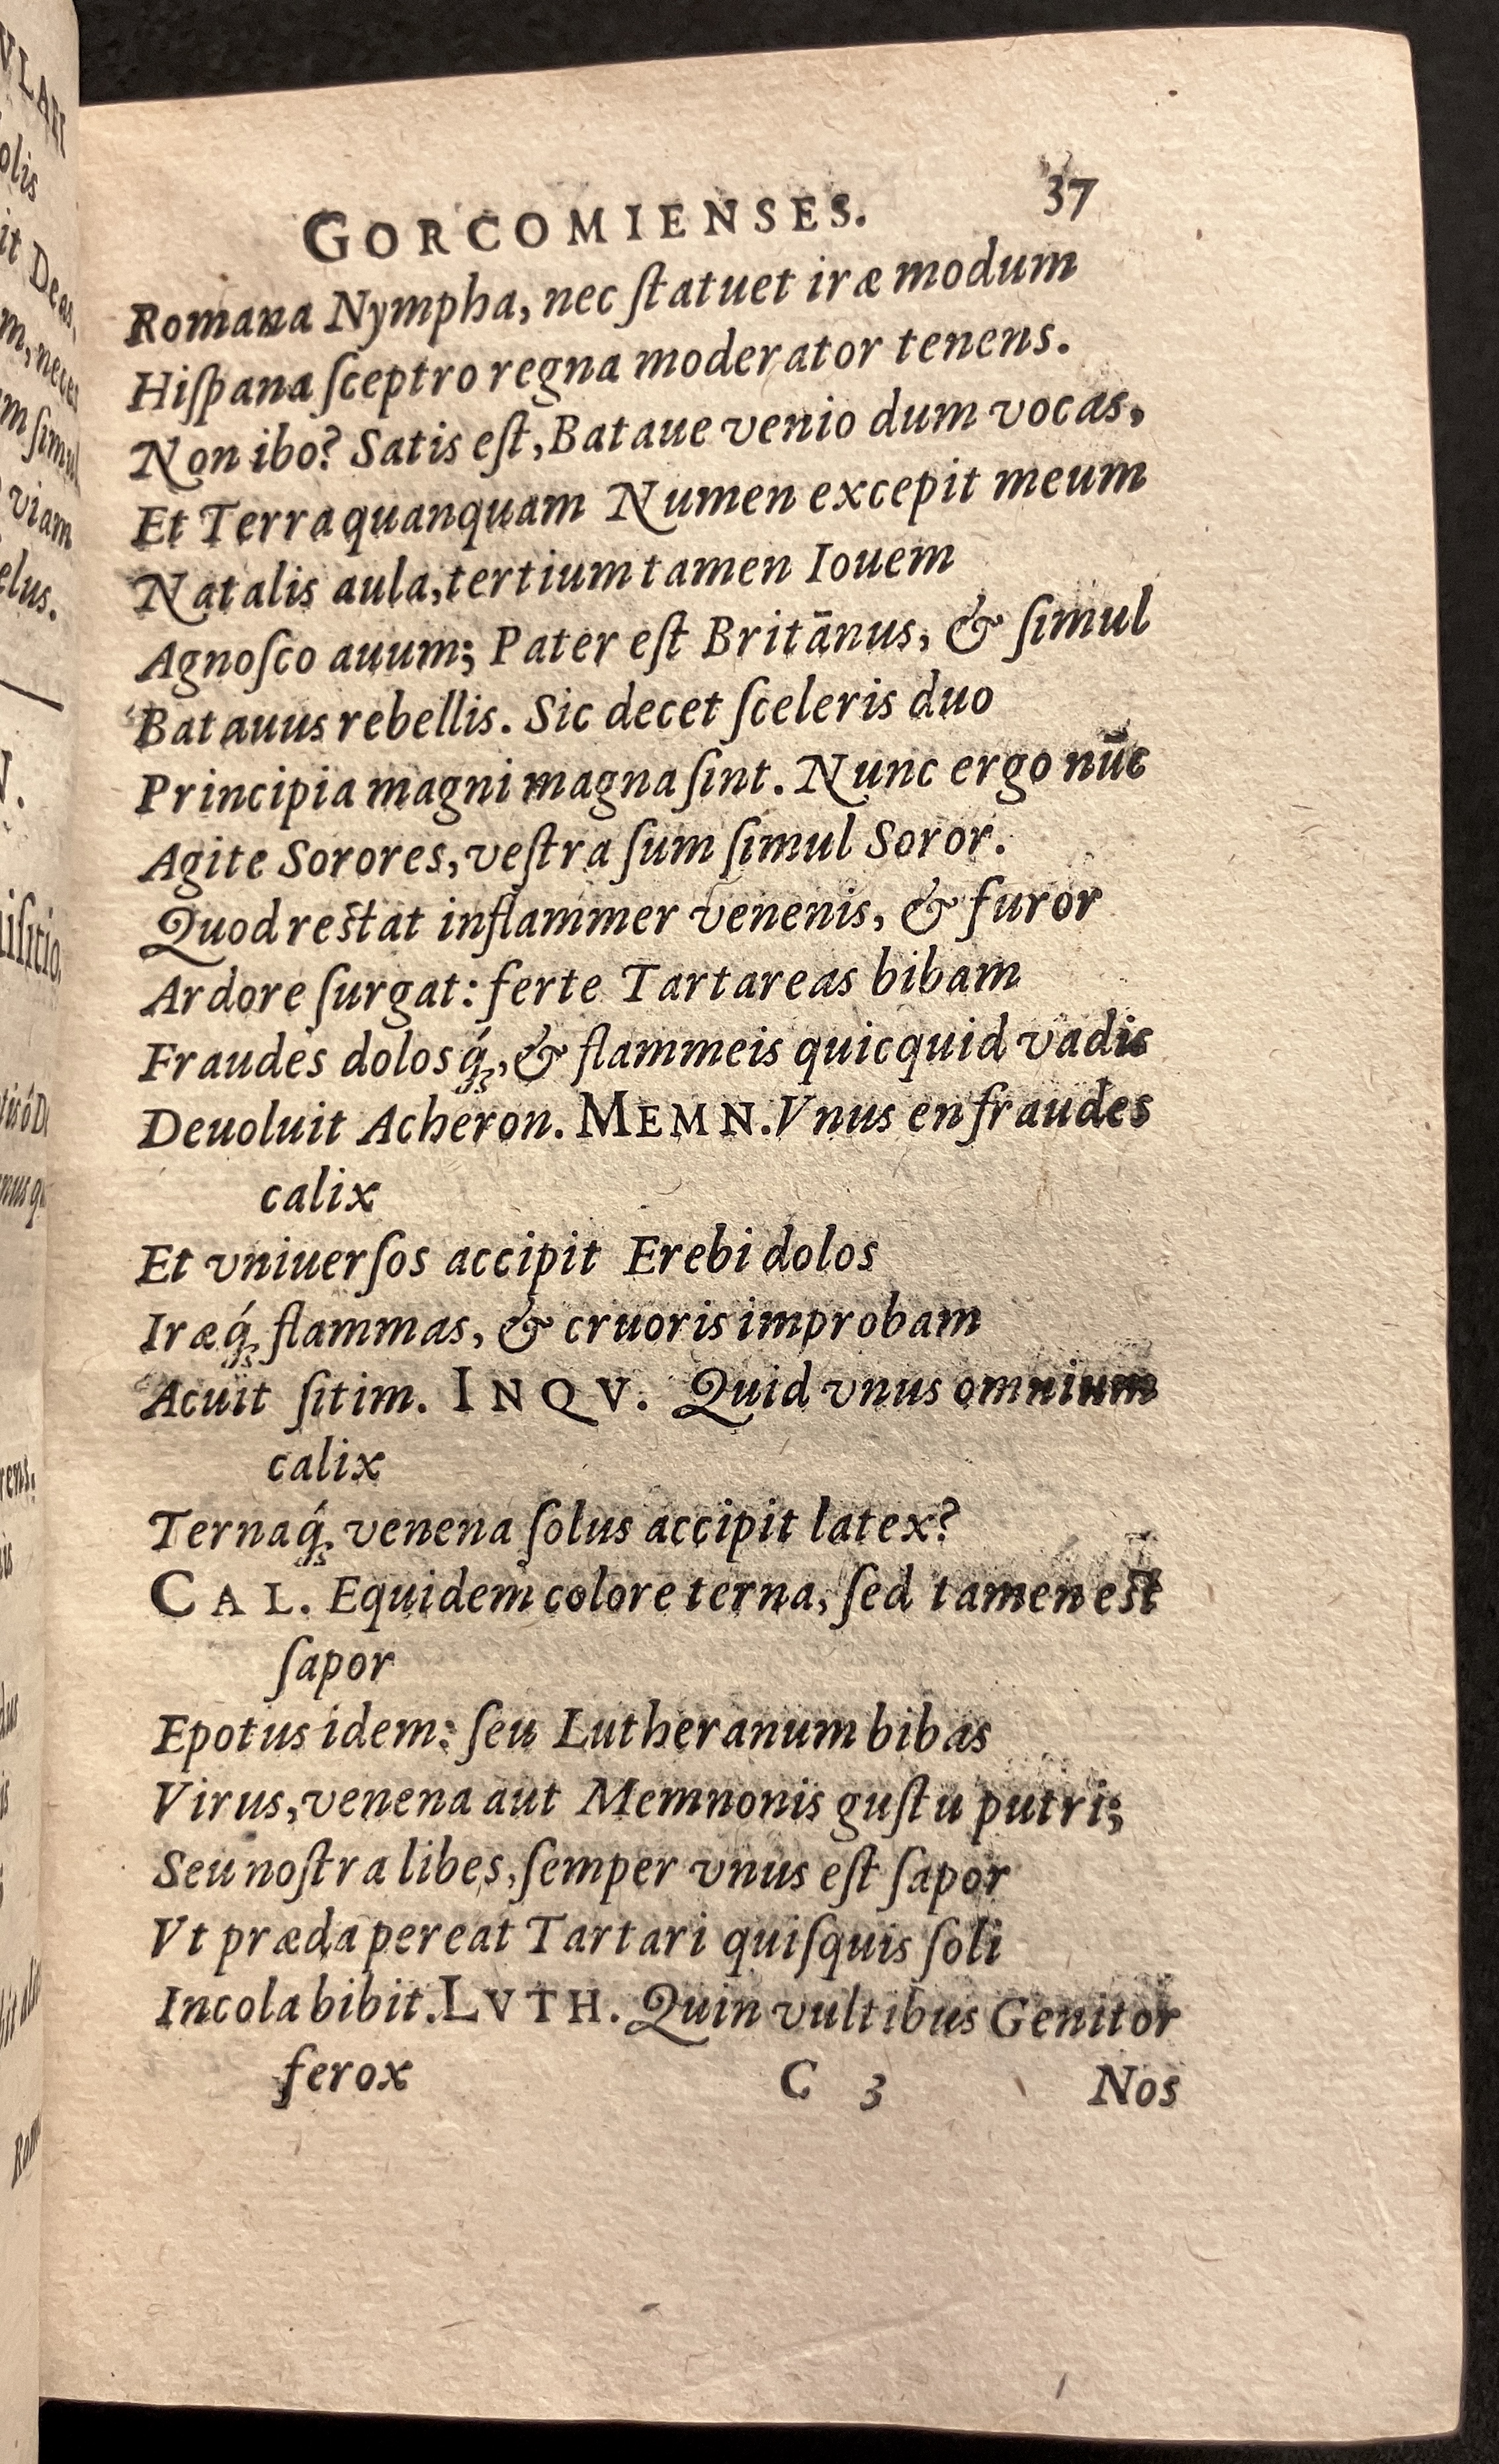 GORCOMIENSES. 37
Romana Nympha, nec ſtatuet iræ modum
Hiſpana ſceptro regna moderator tenens.
Non ibo? Satis eſt, Bataue venio dum vocas,
Et Terra quanquam Numen excepit meum
Natalis aula, tertium tamen Iouem
Agnoſco auum; Pater eſt Britānus, & ſimul
Batauus rebellis. Sic decet ſceleris duo
Principia magni magna ſint. Nunc ergo nūc
Agite Sorores, veſtra ſum ſimul Soror.
Quod reſtat inflammer venenis, & furor
Ardore ſurgat: ferte Tartareas bibam
Fraudes dolosq́;, & flammeis quicquid vadis
Deuoluit Acheron. MEMN. Vnus en fraudes
calix
Et vniuerſos accipit Erebi dolos
Iræq́; flammas, & cruoris improbam
Acuit ſitim. INQV. Quid vnus omnium
calix
Ternaq́; venena ſolus accipit latex?
CAL. Equidem colore terna, ſed tamen eſt
ſapor
Epotus idem: ſeu Lutheranum bibas
Virus, venena aut Memnonis guſtu putri;
Seu noſtra libes, ſemper vnus eſt ſapor
Vt præda pereat Tartari quiſquis ſoli
Incola bibit. LVTH. Quin vultibus Genitor
ferox C 3 Nos